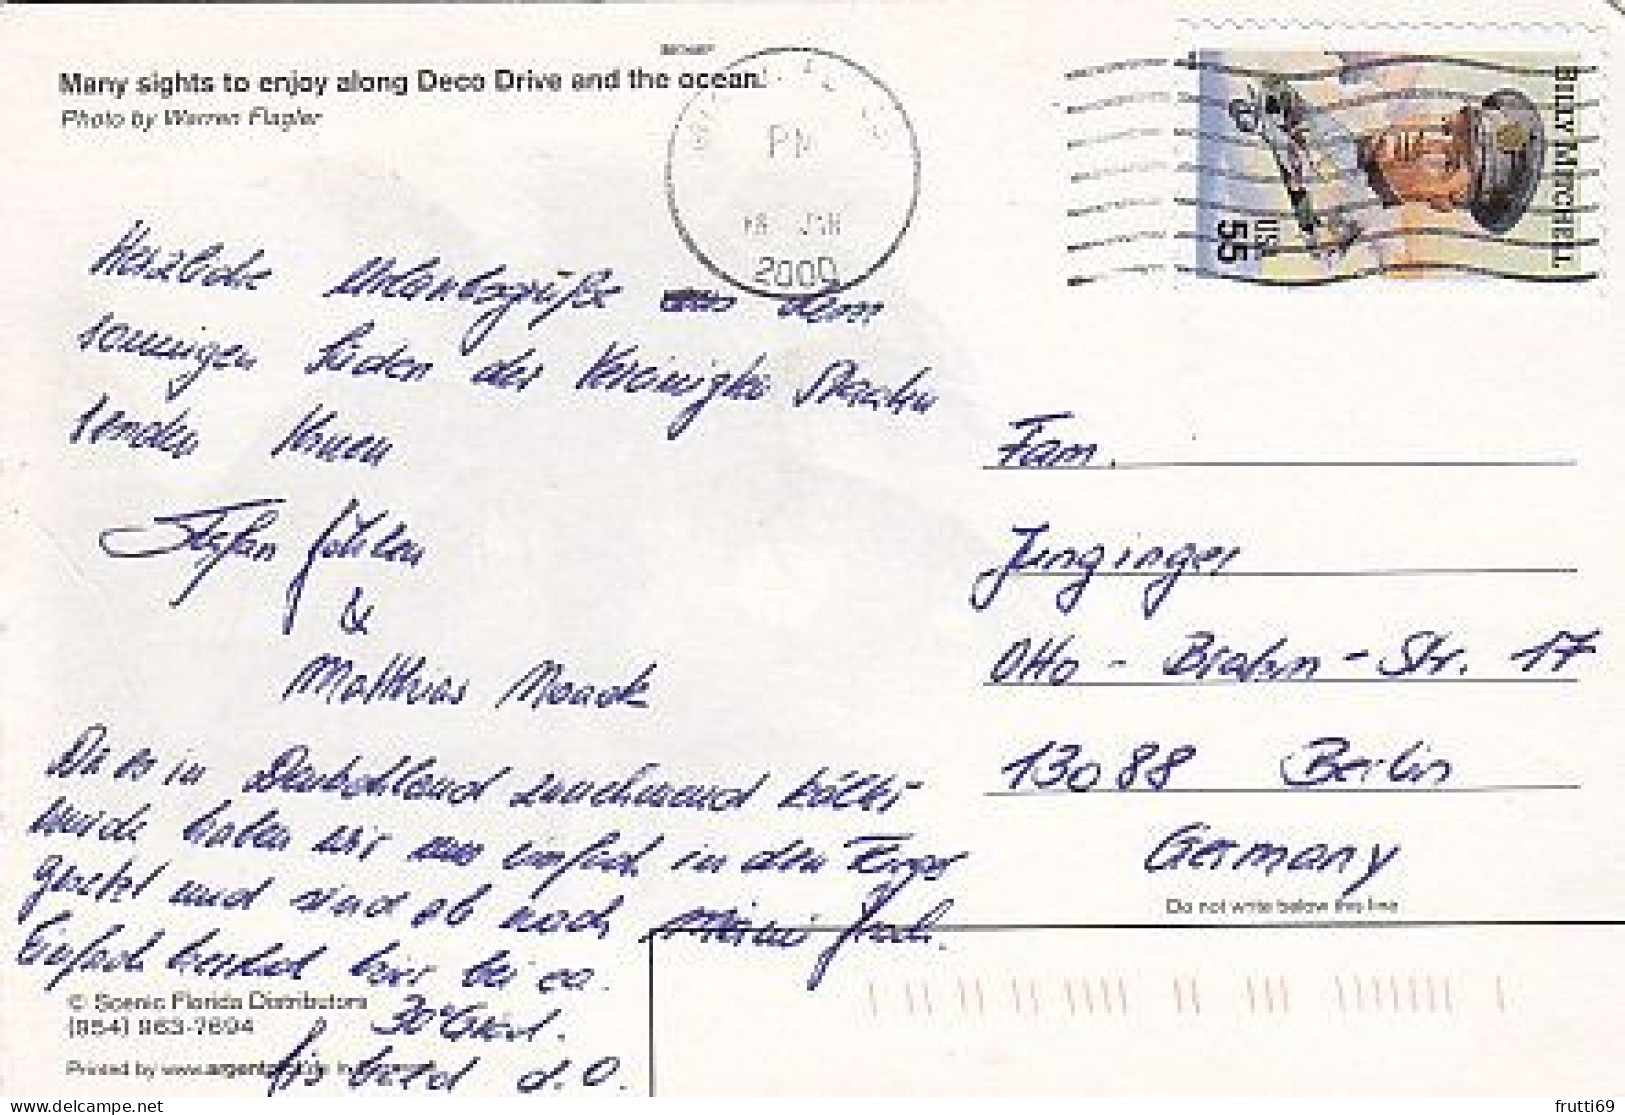 Many sights to enjoy along Deco Drive and the ocean.
Photo by Warren Flagler
PM
18 JAN
2000
BILLY MITCHELL
USA
55
Herzliche Urlaubsgrüße aus dem
sonnigen Süden der Vereinigten Staaten
senden Ihnen
Stefan
&
Matthias Noack
Da es in Deutschland zunehmend kälter
wurde haben wir uns einfach in den Flieger
gesetzt und sind ab nach Miami
Einfach herrlich hier bei ca.
30° Grad.
Bis bald d.O.
Fam.
Junginger
Otto-Brahm-Str. 17
13088 Berlin
Germany
Do not write below this line
© Scenic Florida Distributors
(954) 963-7694
Printed by
frutti69